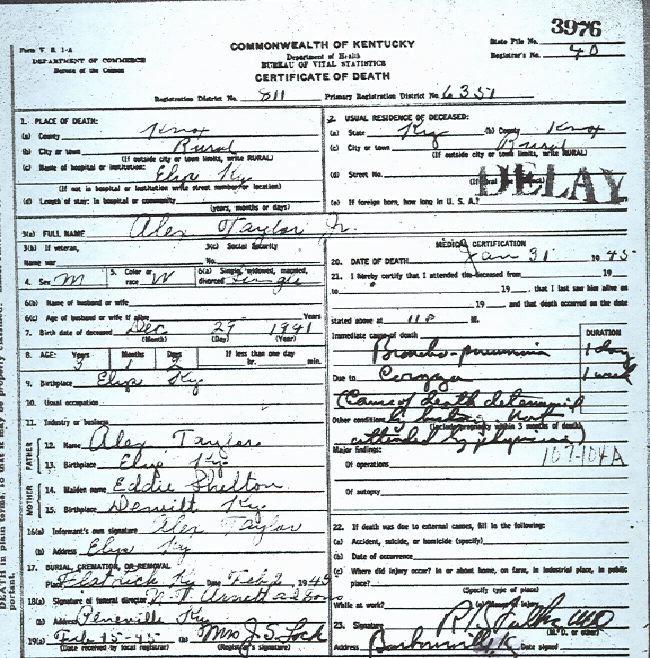 3976
Form V. S. 1-A
DEPARTMENT OF COMMERCE
Bureau of the Census
COMMONWEALTH OF KENTUCKY
Department of Health
BUREAU OF VITAL STATISTICS
CERTIFICATE OF DEATH
State File No.
Registrar's No. 40
Registration District No. 811 Primary Registration District No. 6351
1. PLACE OF DEATH:
(a) County Knox
(b) City or town Rural
(If outside city or town limits, write RURAL)
(c) Name of hospital or institution:
Elys Ky
(If not in hospital or institution write street number or location)
(d) Length of stay: in hospital or community
(years, months or days)
2. USUAL RESIDENCE OF DECEASED:
(a) State Ky (b) County Knox
(c) City or town Rural
(If outside city or town limits, write RURAL)
(d) Street No.
DELAY
(e) If foreign born, how long in U. S. A.?
3(a) FULL NAME Alex Taylor Jr.
3(b) If veteran, 3(c) Social Security
Name war No.
4. Sex M 5. Color or race W 6(a) Single, widowed, married, divorced Single
6(b) Name of husband or wife
6(c) Age of husband or wife if alive Years
7. Birth date of deceased Dec 29 1941
(Month) (Day) (Year)
8. AGE: Years Months Days If less than one day
3 1 2 hr. min.
9. Birthplace Elys Ky
10. Usual occupation
11. Industry or business
FATHER
12. Name Alex Taylor
13. Birthplace Elys Ky
MOTHER
14. Maiden name Eddie Shelton
15. Birthplace Dewitt Ky.
16(a) Informant's own signature Alex Taylor
(b) Address Elys Ky
17. BURIAL, CREMATION, OR REMOVAL
Place Ky Date Feb 2 1945
18(a) Signature of funeral director & Sons
(b) Address Pineville Ky
19(a) Feb 15-45 (b) Mrs J. S. Lock
(Date received by local registrar) (Registrar's signature)
MEDICAL CERTIFICATION
20. DATE OF DEATH Jan 31 1945
21. I hereby certify that I attended the deceased from 19
to 19 , that I last saw him alive on
19 and that death occurred on the date
stated above at 11 M.
Immediate cause of death
Broncho-pneumonia
DURATION
1 day
Due to Coryza 1 week
(Cause of death determined
Other conditions by Not
(Include pregnancy within 3 months of death)
attended by physician)
Major findings: 107-104A
Of operations
Of autopsy
22. If death was due to external causes, fill in the following:
(a) Accident, suicide, or homicide (specify)
(b) Date of occurrence
(c) Where did injury occur? in or about home, on farm, in industrial place, in public
place?
(Specify type of place)
While at work? (e) Means of injury
23. Signature MD
(M. D. or other)
Address Barbourville, K Date signed
DEATH in plain terms,
portant.